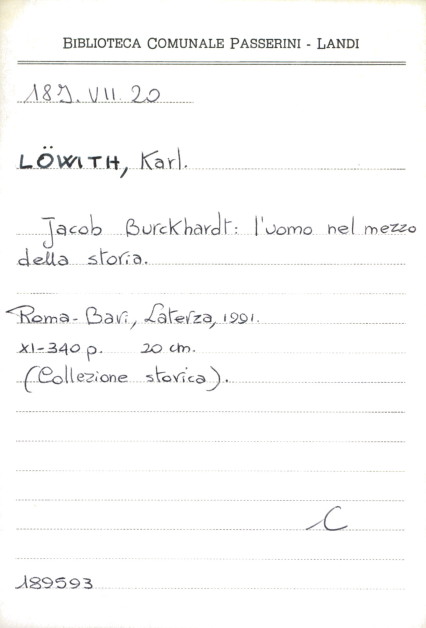 BIBLIOTECA COMUNALE PASSERINI - LANDI
18J. VII 20
LÖWITH, Karl.
Jacob Burckhardt: l'uomo nel mezzo
della storia.
Roma-Bari, Laterza, 1991.
XI-340 p. 20 cm.
(Collezione storica).
C
189593